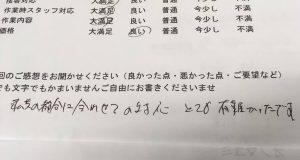 接客対応 大満足 良い 普通 今少し 不満
作業時スタッフ対応 大満足 良い 普通 今少し 不満
作業内容 大満足 良い 普通 今少し 不満
価格 大満足 良い 普通 今少し 不満
回のご感想をお聞かせください（良かった点・悪かった点・ご要望など）
でも文字でもかまいませんご自由にお書きくださいませ
私共の都合に合わせての とても 有難かったです